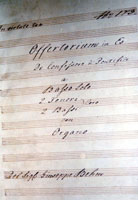 Offertorium in Es
De Confessore et Pontifice
a
Basso Solo
2 Tenori
2 Bassi
con
Organo
Del Sigl. Giuseppe Behm